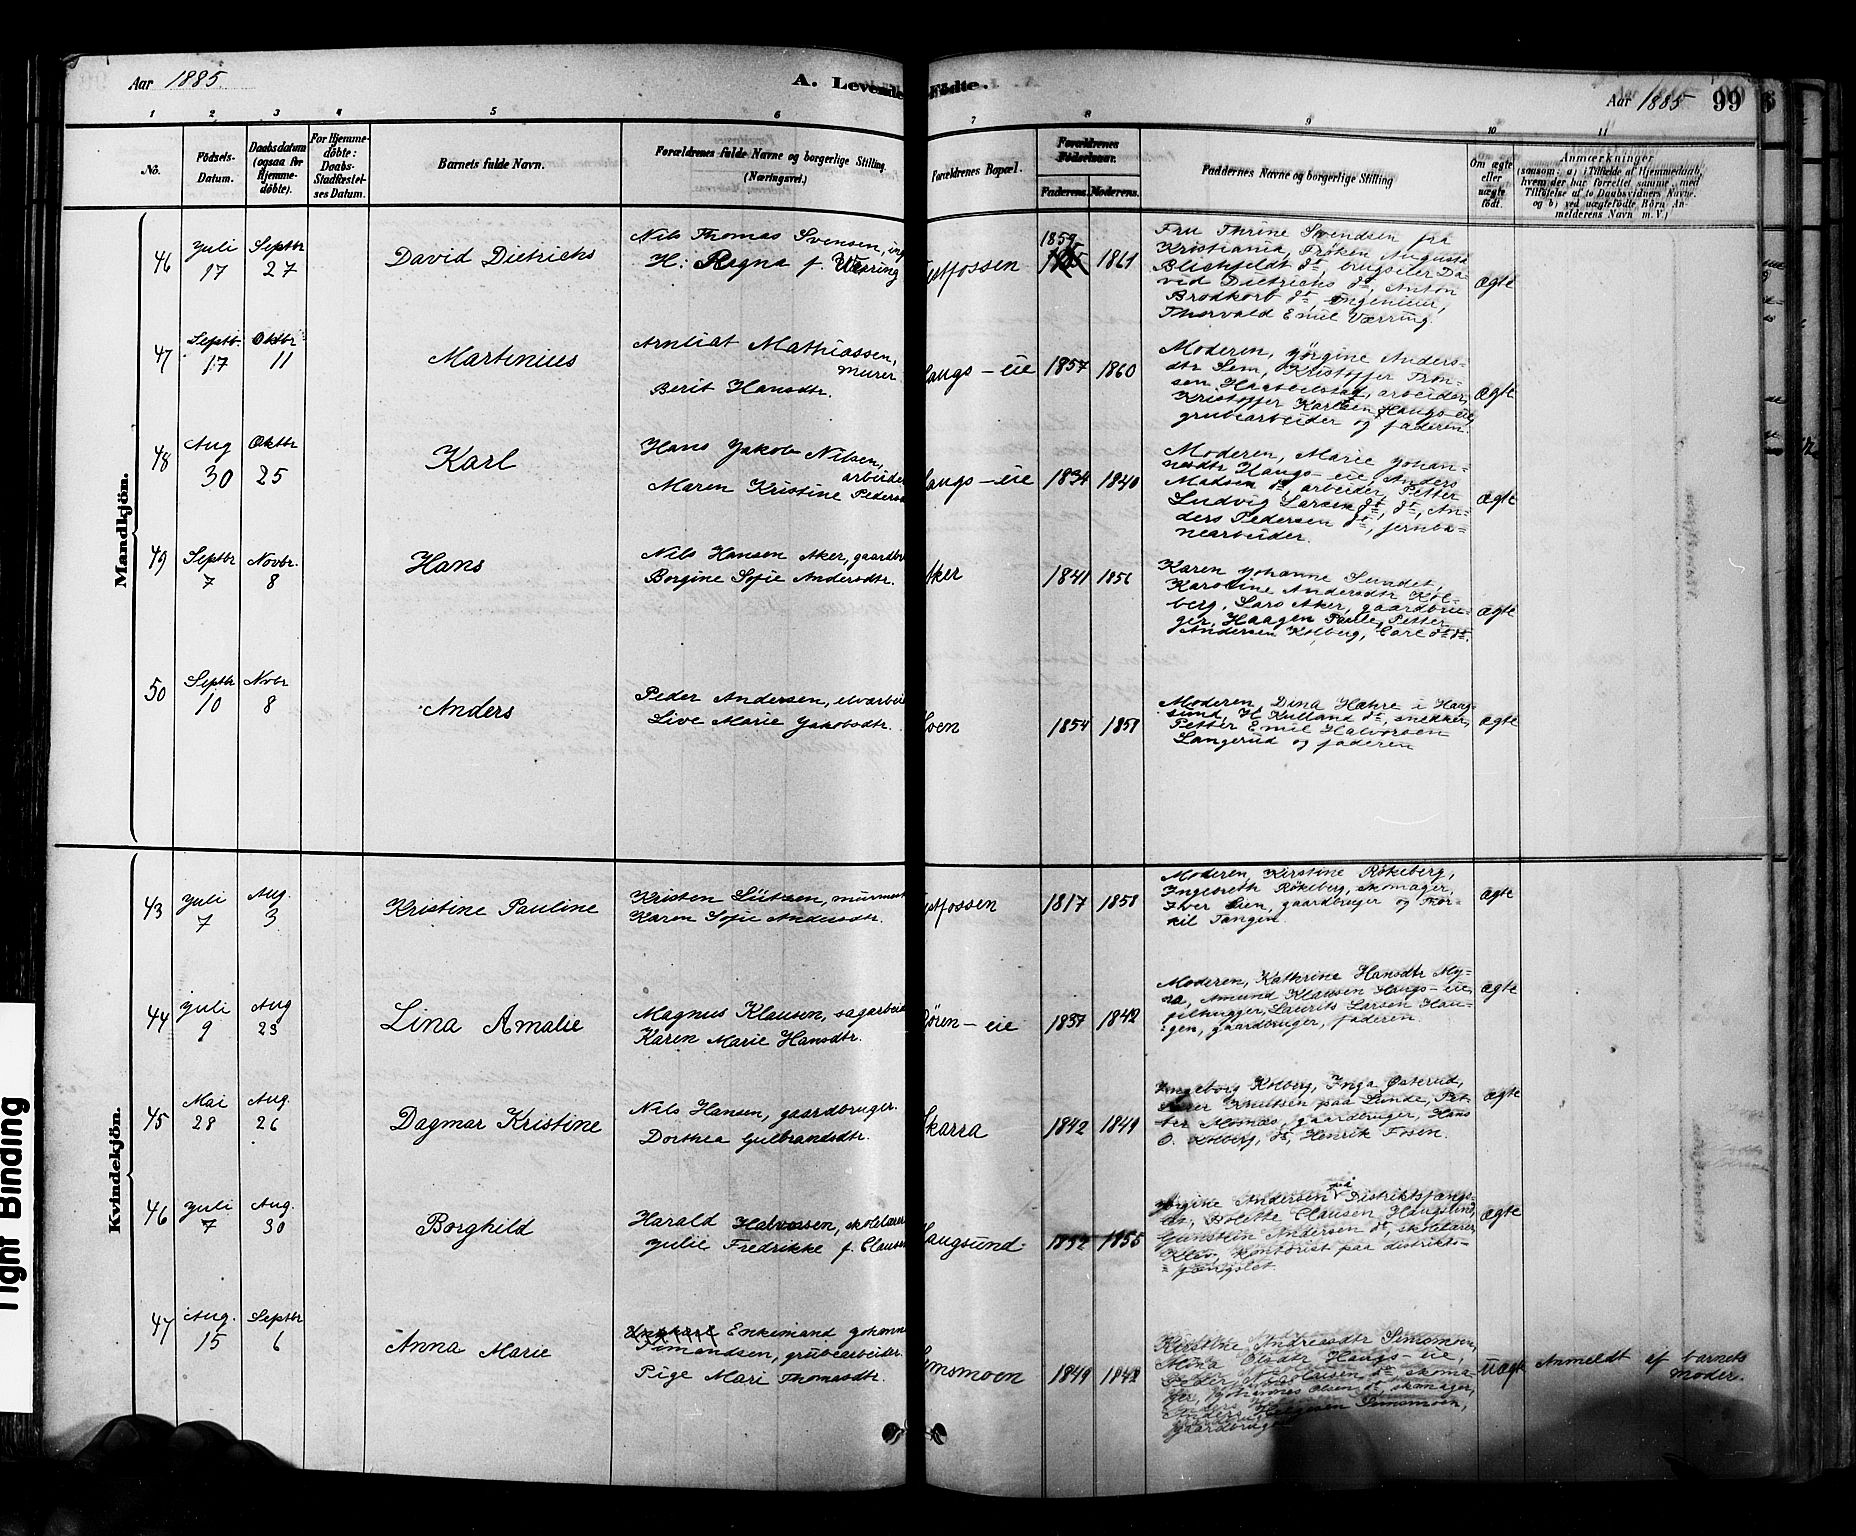 Aar 1885.
A. Levende
Fødte.
Aar 1885
99
1 2 3 4 5 6 7 8 9 10 11
No.
Fødsels-
Datum.
Daabsdatum
(ogsaa for
Hjemme-
døbte).
For Hjemme-
døbte:
Daabs-
Stadfæstel-
ses Datum.
Barnets fulde Navn.
Forældrenes fulde Navne og borgerlige Stilling.
(Næringsvei.)
Forældrenes Bopæl.
Forældrenes
Fødselsaar.
Faderens. Moderens.
Faddernes Navne og borgerlige Stilling
Om ægte
eller
uægte
født.
Anmærkninger
(saasom: a) i Tilfælde af Hjemmedaab,
hvem der har forrettet samme, med
Tilføielse af to Daabsvidners Navne,
og b) ved uægtefødte Børn An-
melderens Navn m. V.)
Mandkjøn.
46
Juli
17
Septbr
27
David Dietrichs
Nils Thomas Svensen, ing
H: Ragna f. Wærring
stfossen
1859
1861
Fru Thrine Svendsen fra
Kristiania, Frøken Augusta
Blichfeldt dt, brugseier Da-
vid Dietrichs dt, Anton
Brodkorb dt, ingenieur,
Thorvald Emil Værring.
ægte
47
Septb.
17
Oktbr
11
Martinius
Arntiat Mathiassen,
murer
Berit Hansdtr.
augs-eie
1857 1860
Moderen, Jørgine Anders-
dtr Sem, Kristoffer Tron-
sen, arbeider,
Kristoffer Karlsen Haugs-eie,
grubearbeider og faderen.
ægte
48
Aug
30
Oktbr
25
Karl
Hans Jakob Nilsen,
arbeider
Maren Kristine Peders
augs-eie
1834 1840
Moderen, Marie Johan-
nesdtr Haugs-eie, Anders
Madsen dt, arbeider, Petter
Ludvig Larsen dt, dt, An-
ders Pedersen dt, jernba-
nearbeider.
ægte
49
Septbr
7
Novbr.
8
Hans
Nils Hansen Aker, gaardbr
Borgine Sofie Andersdtr.
Aker
1841 1856
Karen Johanne
Karoline Andersdtr Kol-
berg, Lars Aker, gaardbru-
ger, Haagen Petter
Andersen Kolberg, Carl dt dt.
ægte
50
Septbr
10
Nvbr
8
Anders
Peder Andersen, elvarbei
Live Marie Jakobsdtr.
oen
1854 1858
Moderen, Dina Hæhre i Haug-
sund, H. Kulland dt, snekker,
Petter Emil Halvorsen
Langerud og faderen
ægte
Kvindekjøn.
43
Juli
7
Aug.
3
Kristine Pauline
Kristen murmest
Karen Sofie Andersdtr.
stfossen
1817 1858
Moderen, Kirstine Røkeberg,
Ingebreth Røkeberg, skomager,
Iver Lien, gaardbruger og Thor-
kil Tangen.
ægte
44
Juli
9
Aug
23
Lina Amalie
Magnus Klausen, sagarbeid
Karen Marie Hansdtr.
øren-eie
1837 1842
Moderen, Kathrine Hansdtr My-
ra, Amund Klausen Haugs-eie,
filhugger, Laurits Larsen Hau-
gen, gaardbruger, faderen.
ægte
45
Mai
28
Aug.
26
Dagmar Kristine
Nils Hansen, gaardbruger.
Dorthea Gulbrandsdtr.
Skarra
1842 1849
Ingeborg Kolberg, Inga Østerud,
Knutsen paa Sunde, Pet-
ter gaardbruger, Hans
O. Kolberg, dt, Henrik Fosen.
ægte
46
Juli
7
Aug.
30
Borghild
Harald Halvorsen, skolelærer
Julie Fredrikke f. Clausen
Haugsund
1852 1855
Jørgine Andersen på Distriktsfængs-
let, Bolette Clausen Haugsund,
Gunstein Andersen dt, skolelærer
Klev, Kontorist paa distrikts-
fængslet.
ægte
47
Aug.
15
Septbr
6
Anna Marie
Enkemand Johann
Simensen, grubearbeider.
Pige Mari Thomasdtr.
msmoen
1849 1842
Kirstine Andreasdtr Simsmoen,
Olsdtr Haugs-eie,
Peder Nicolaisen dt, skoma-
ger, Johannes Olsen dt, skomager,
Anders Helgesen Simsmoen,
gaardbruger
uægte
Anmeldt af barnets
moder.
Tight Binding